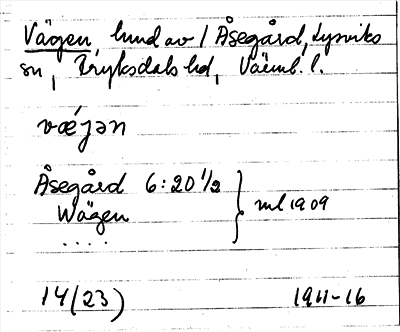 Vägen, hmd av 1 Åsegård, Lysviks
sn, Fryksdals hd, Värml. l.
vǽjən
Åsegård 6:20 1/2
Wägen } ml 1909
. . . . .
14(23) 1911-16